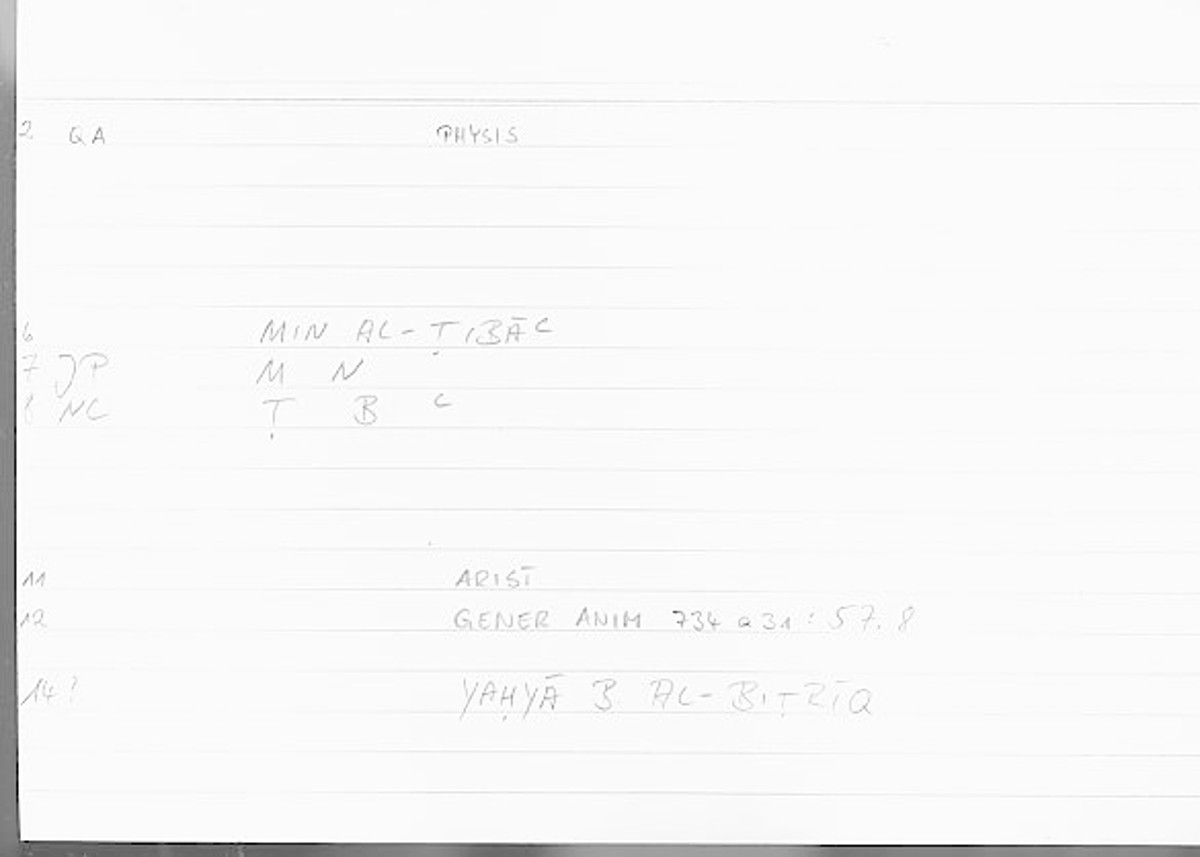 2 QA PHYSIS
6 MIN AL-ṬIBĀC
7 JP M N
8 NC Ṭ B C
11 ARIST
12 GENER ANIM 734 a 31 : 57. 8
14? YAḤYĀ B. AL-BIṬRĪQ